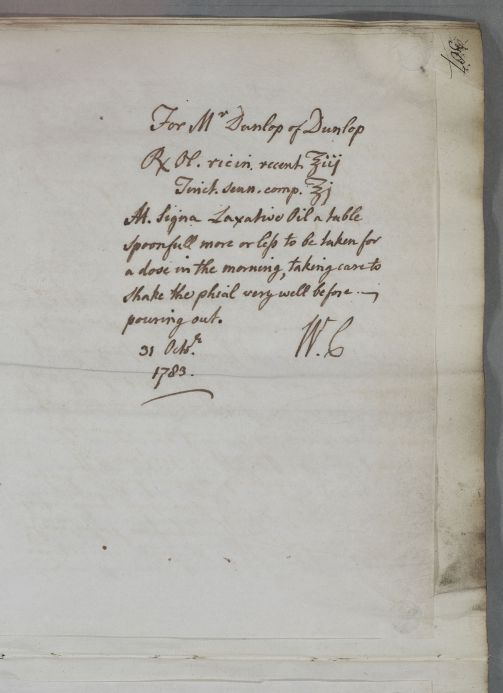 For Mr Dunlop of Dunlop
℞ Ol. ricin. recent. ℥iij
Tinct. senn. comp. ℥j
M. Signa Laxative Oil a table
spoonfull more or less to be taken for
a dose in the morning, taking care to
shake the phial very well before
pouring out.
31 Octr.
W. C
1783.